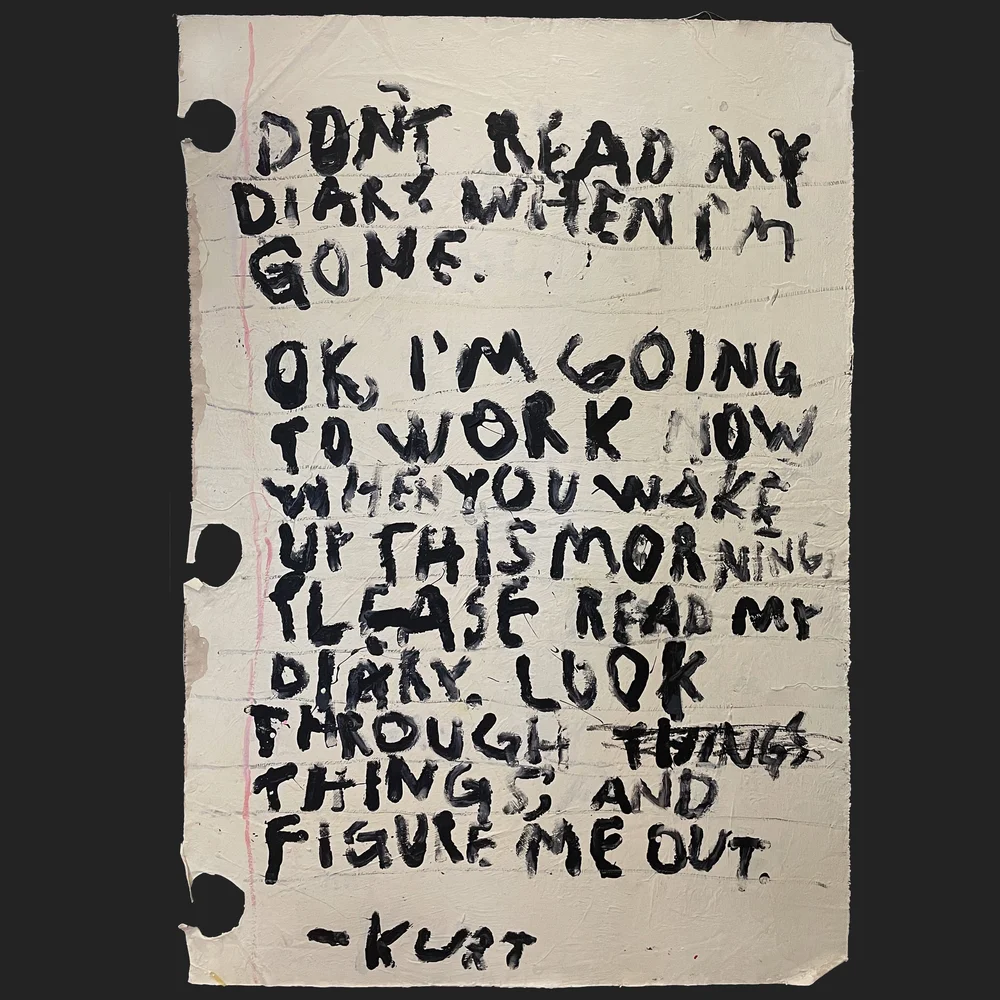 DON'T READ MY
DIARY WHEN I'M
GONE.
OK, I'M GOING
TO WORK NOW
WHEN YOU WAKE
UP THIS MORNING,
PLEASE READ MY
DIARY. LOOK
THROUGH THINGS
THINGS, AND
FIGURE ME OUT.
-KURT